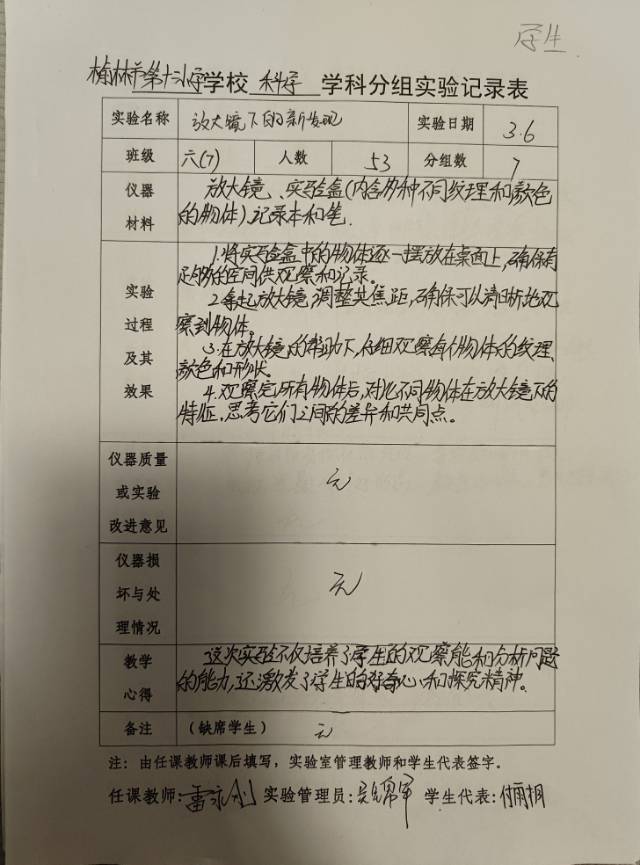 学生
榆林市第十二小学学校 科学 学科分组实验记录表
实验名称 放大镜下的新发现 实验日期 3.6
班级 六(7) 人数 53 分组数 7
仪器材料
放大镜、实验盒(内含多种不同纹理和颜色
的物体)、记录本和笔.
实验过程及其效果
1.将实验盒中的物体逐一摆放在桌面上,确保有
足够的空间供观察和记录。
2.拿起放大镜,调整其焦距,确保可以清晰地观
察到物体。
3.在放大镜的帮助下,仔细观察每个物体的纹理、
颜色和形状。
4.观察完所有物体后,对比不同物体在放大镜下的
特征,思考它们之间的差异和共同点。
仪器质量
或实验
改进意见
无
仪器损
坏与处
理情况
无
教学心得
这次实验不仅培养了学生的观察能和分析问题
的能力,还激发了学生的好奇心和探究精神。
备注 (缺席学生) 无
注:由任课教师课后填写,实验室管理教师和学生代表签字。
任课教师:雷永刚 实验管理员: 学生代表:付雨桐